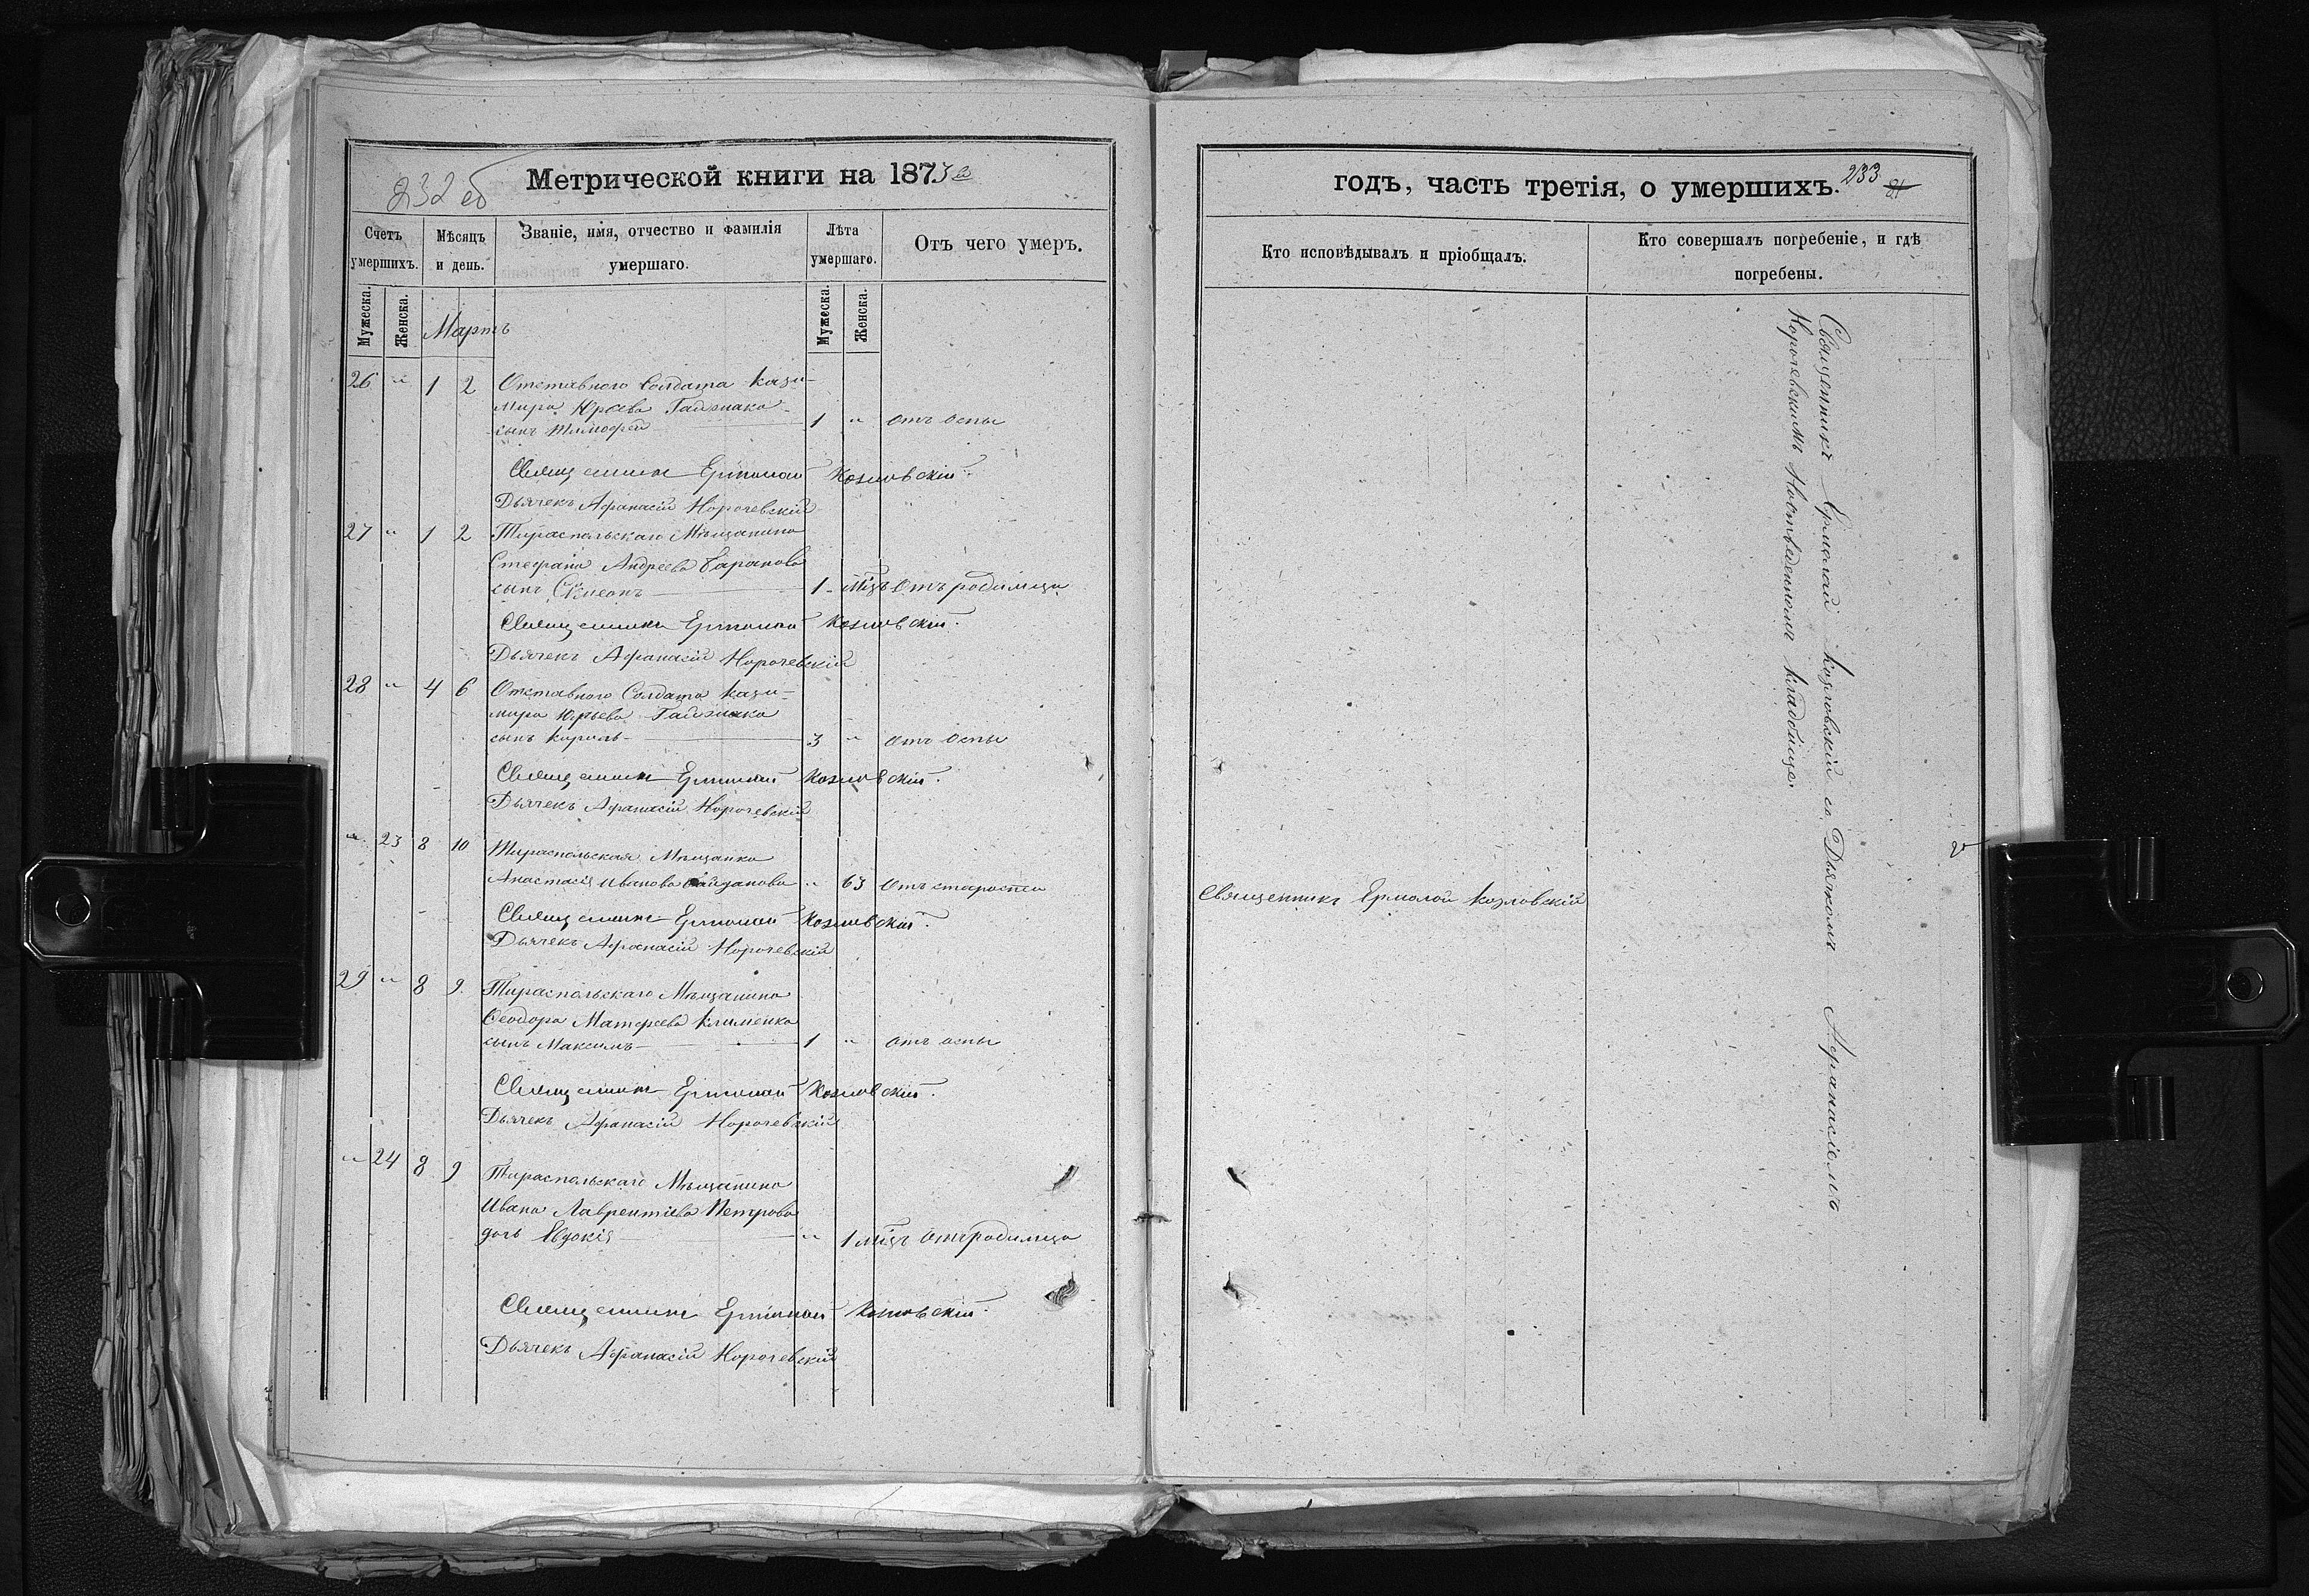 232 об
Метрической книги на 1873 й
Счетъ умершихъ.
Мѣсяцъ и день.
Званіе, имя, отчество и фамилія умершаго.
Лѣта умершаго.
Отъ чего умеръ.
Мужеска.
Женска.
Мартъ
Мужеска.
Женска.
26 „ 1 2 Отставного Солдата Кази-
мира Юрьева
сынъ Тимофей 1 „ отъ оспы
Священникъ Ермолай Козловскій.
Дьячекъ Афанасій Корочевскій
27 „ 1 2 Тираспольскаго Мѣщанина
Стефана Андреева Баранова
сынъ Симеонъ 1 мѣцъ отъ родимца
Священникъ Ермолай Козловскій.
Дьячекъ Афанасій Корочевскій
28 „ 4 6 Отставного Солдата Кази-
мира Юрьева
сынъ Кирилъ 3 „ отъ оспы
Священникъ Ермолай Козловскій.
Дьячекъ Афанасій Корочевскій
„ 23 8 10 Тираспольская Мѣщанка
Анастасія Иванова „ 63 отъ старости
Священникъ Ермолай Козловскій.
Дьячекъ Афанасій Корочевскій
29 „ 8 9 Тираспольскаго Мѣщанина
Ѳеодора Матфеева Клименка
сынъ Максимъ 1 „ отъ оспы
Священникъ Ермолай Козловскій.
Дьячекъ Афанасій Корочевскій
„ 24 8 9 Тираспольскаго Мѣщанина
Ивана Лаврентіева Петрова
дочь Евдокія „ 1 мѣцъ отъ родимца
Священникъ Ермолай Козловскій.
Дьячекъ Афанасій Корочевскій
годъ, часть третія, о умершихъ.
233
Кто исповѣдывалъ и пріобщалъ.
Кто совершалъ погребеніе, и гдѣ
погребены.
Священникъ Ермолай Козловскій
Священникъ Ермолай Козловскій со Дьячкомъ Афанасіемъ
Корочевскимъ кладбище.